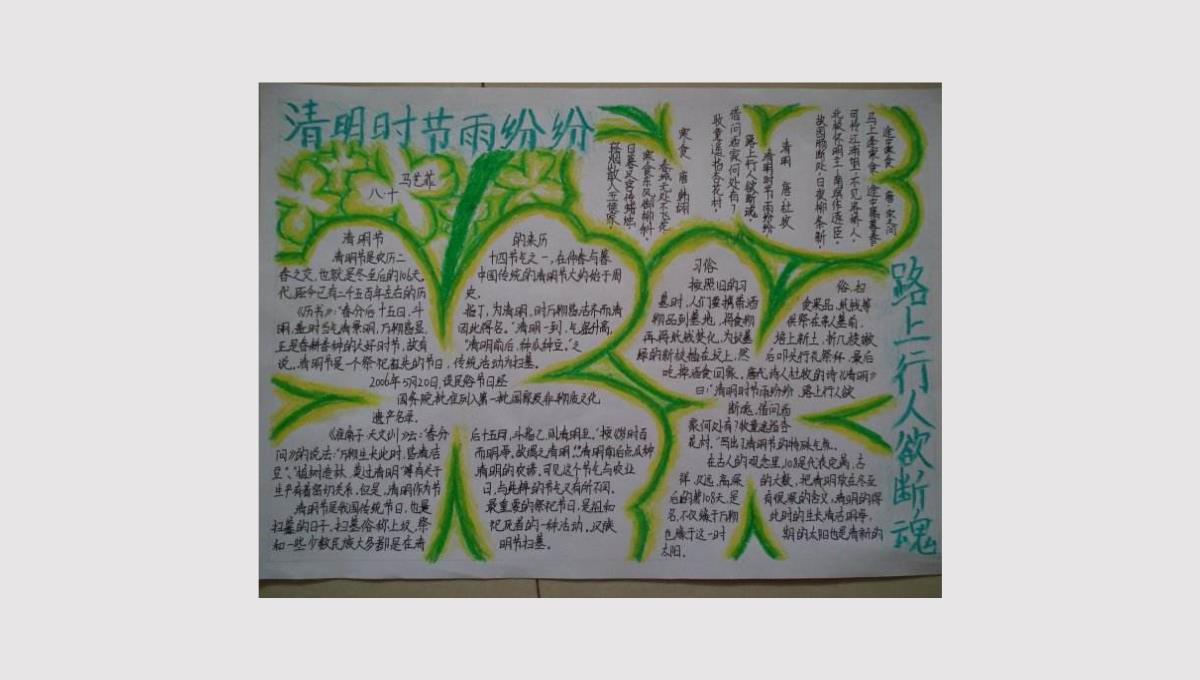 清明时节雨纷纷
马艺菲
八·十
寒食 唐 韩翃
春城无处不飞花
寒食东风御柳斜
日暮汉宫传蜡烛
轻烟散入五侯家
清明 唐·杜牧
清明时节雨纷纷
路上行人欲断魂
借问酒家何处有?
牧童遥指杏花村
途中寒食 唐 宋之问
马上逢寒食,途中属暮春
可怜江浦望,不见洛桥人,
北极怀明主,南溟作逐臣,
故园肠断处,日夜柳条新,
路上行人欲断魂
清明节
的来历
清明节是农历二
十四节气之一,在仲春与暮
春之交,也就是冬至后的106天。
中国传统的清明节大约始于周
代,距今已有二千五百年左右的历
史。
《历书》:"春分后十五日,斗
指丁,为清明,时万物皆洁齐而清
明,盖时当气清景明,万物皆显,
因此得名。"清明一到,气温升高,
正是春耕春种的大好时节,故有
"清明前后,种瓜种豆。"之
说。清明节是一个祭祀祖先的节日,传统活动为扫墓。
2006年5月20日,该民俗节日经
国务院批准列入第一批国家级非物质文化
遗产名录。
《淮南子·天文训》云:"春分
后十五日,斗指乙,则清明至。"按《岁时百
问》的说法:"万物生长此时,皆清洁
而明净。故谓之清明。"清明前后点瓜种
豆"、"植树造林,莫过清明"等有关于
清明的农谚。可见这个节气与农业
生产有着密切关系。但是,清明作为节
日,与纯粹的节气又有所不同。
清明节是我国传统节日,也是
最重要的祭祀节日,是祖和
扫墓的日子。扫墓俗称上坟,祭
祀死者的一种活动。汉族
和一些少数民族大多都是在清
明节扫墓。
习俗
按照旧的习
俗,扫
墓时,人们要携带酒
食果品,纸钱等
物品到墓地,将食物
供祭在亲人墓前,
再将纸钱焚化,为坟墓
培上新土,折几枝嫩
绿的新枝插在坟上,然
后叩头行礼祭拜,最后
吃掉酒食回家。唐代诗人杜牧的诗《清明》
曰:"清明时节雨纷纷,路上行人欲
断魂,借问酒
家何处有?牧童遥指杏
花村。"写出了清明节的特殊气氛。
在古人的观念里,108是代表完满、吉
祥、久远、高深
的大数,把清明放在冬至
后的第108天,是
有很深的含义,清明的得
名,不仅缘于万物
此时的生长清洁明净,
也缘于这一时
期的太阳也是清新的
太阳。